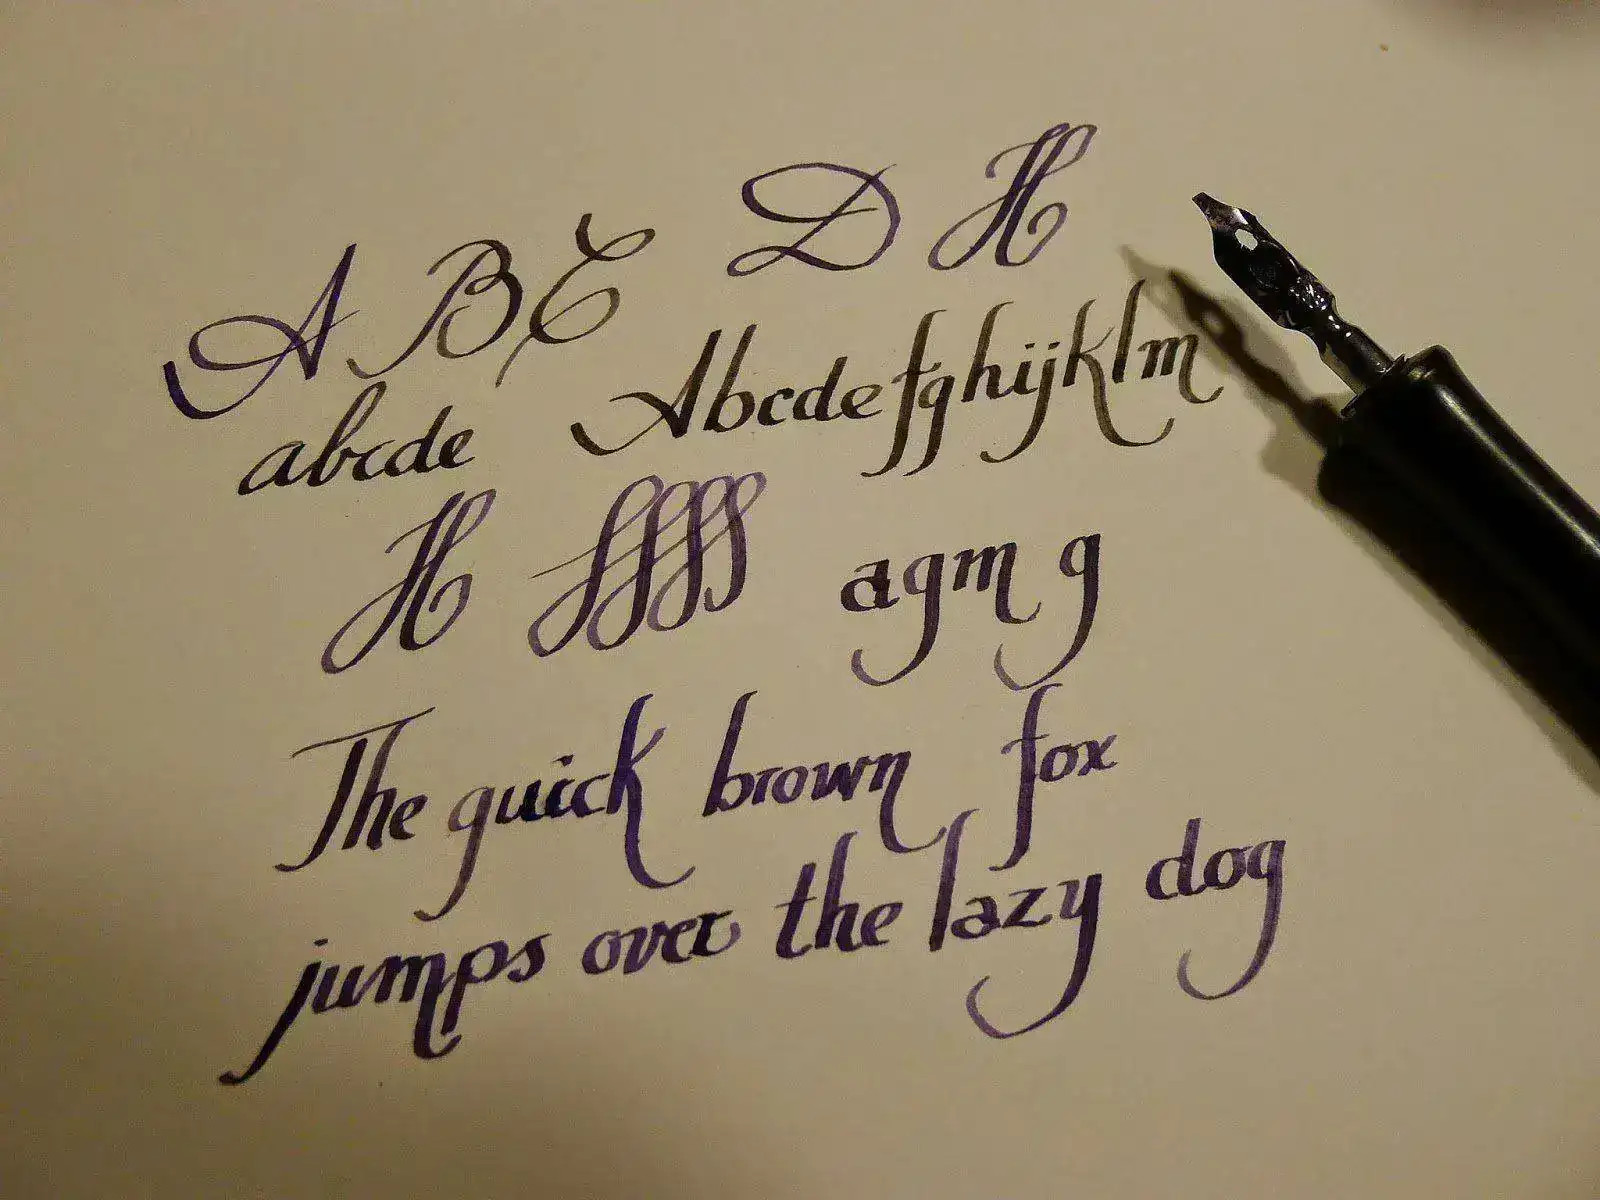 A B C D H
abcde Abcdefghijklm
H ffff agm g
The quick brown fox
jumps over the lazy dog